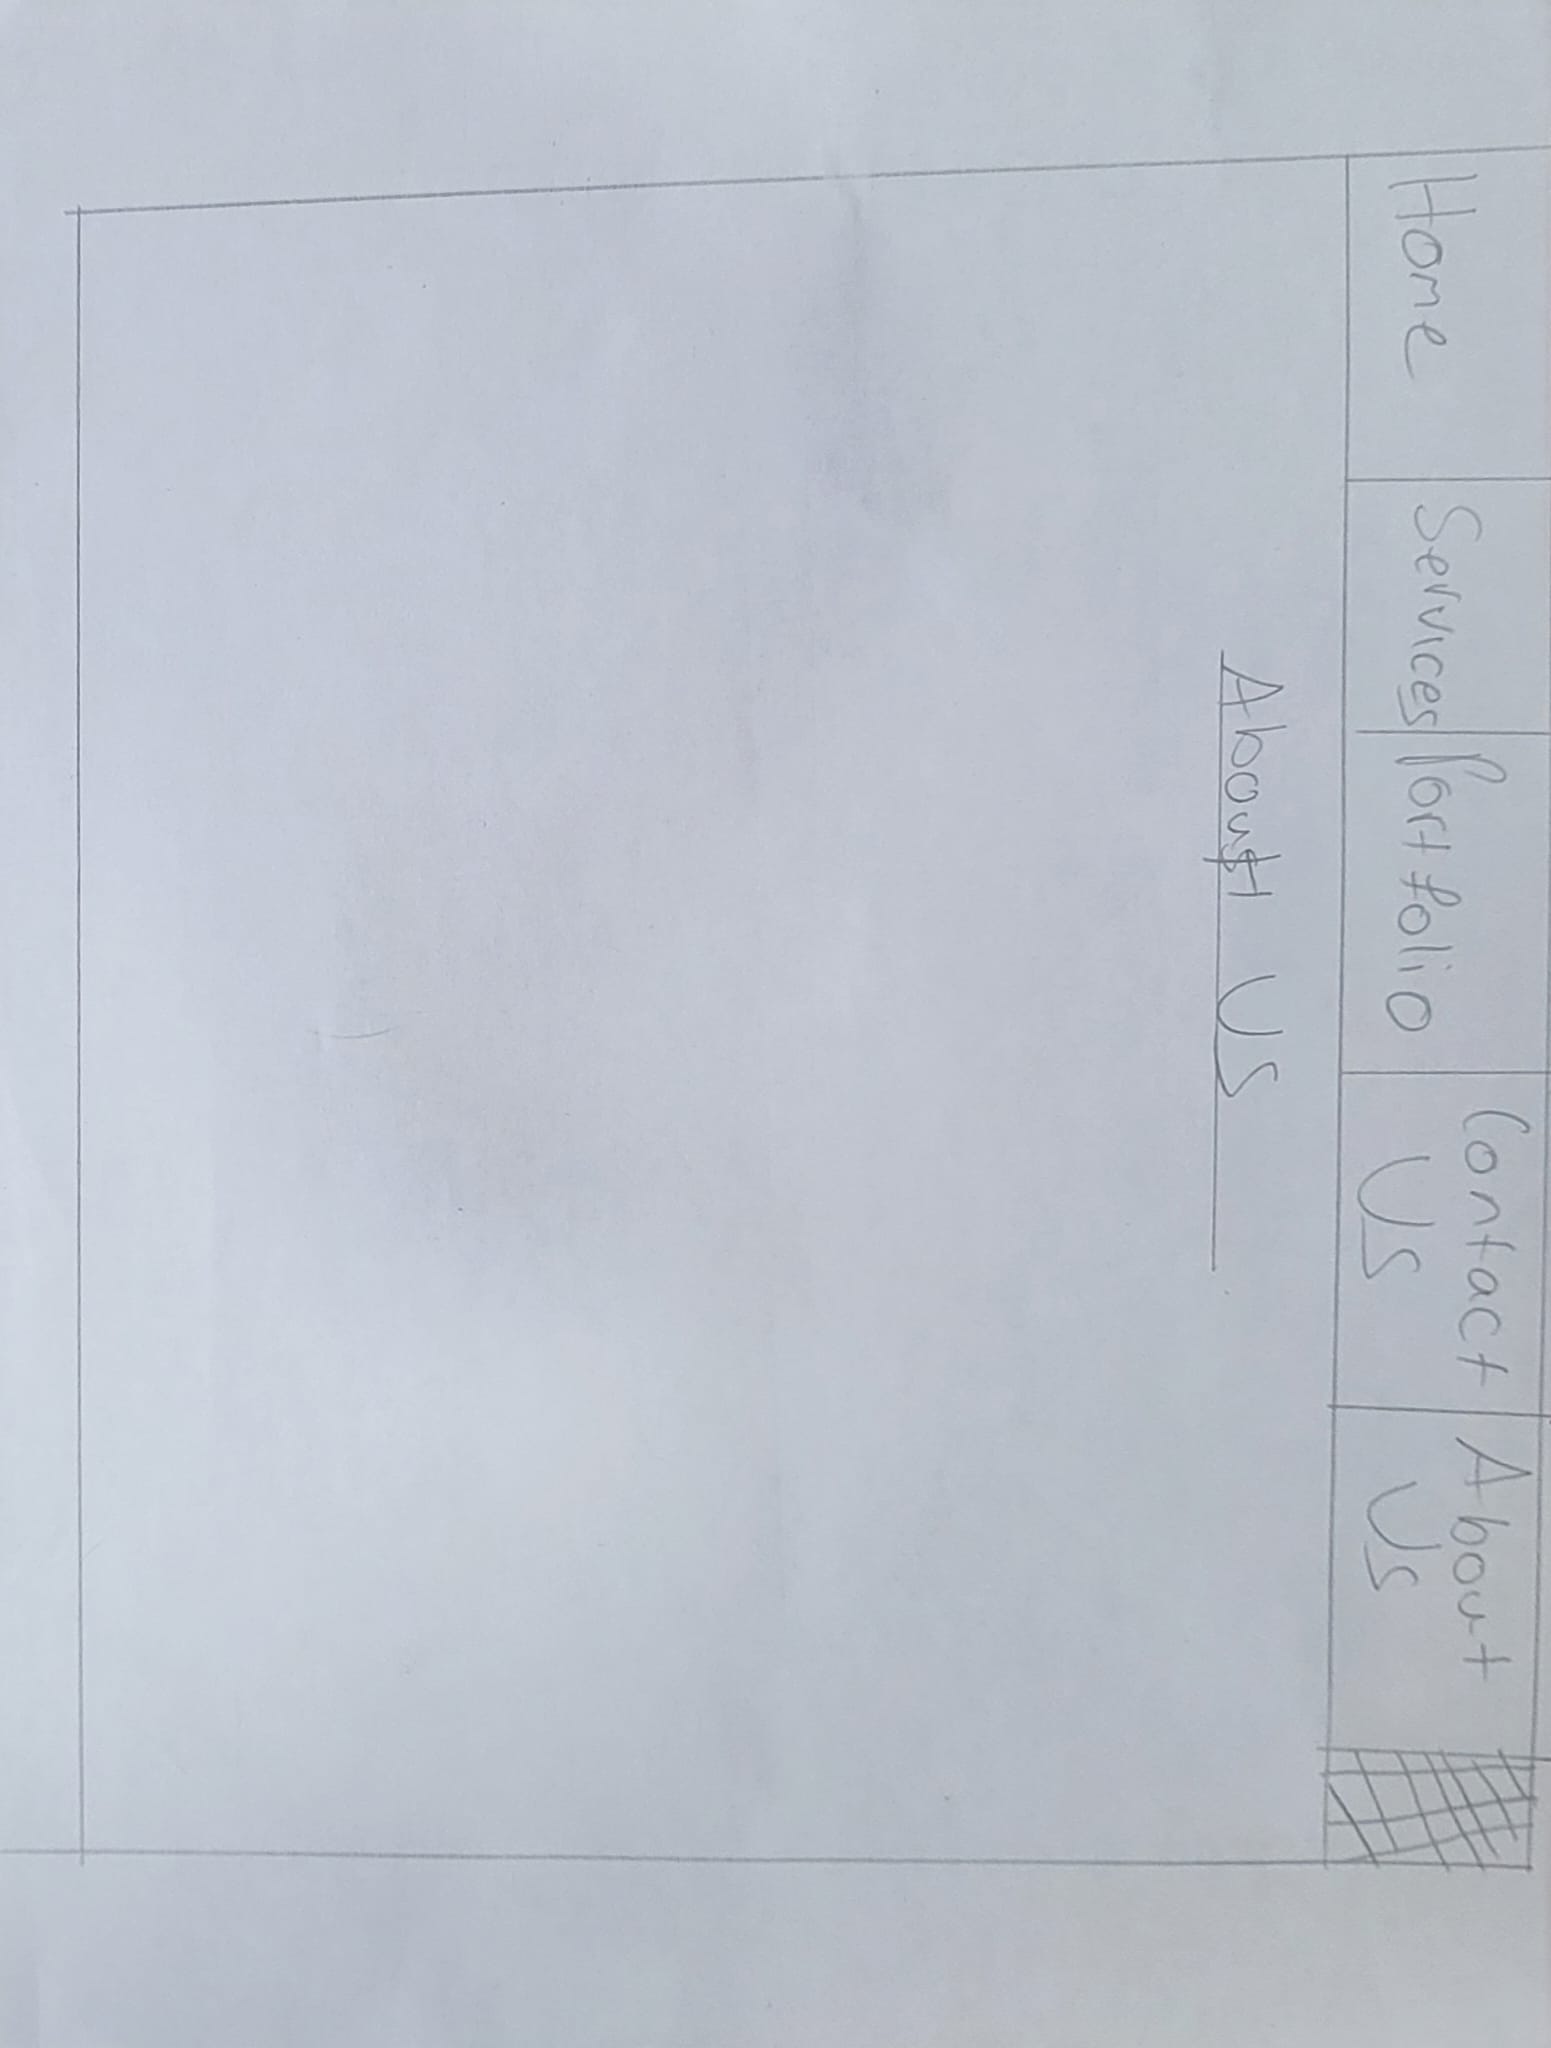 Home
Services
Portfolio
Contact
Us
About
Us
About US